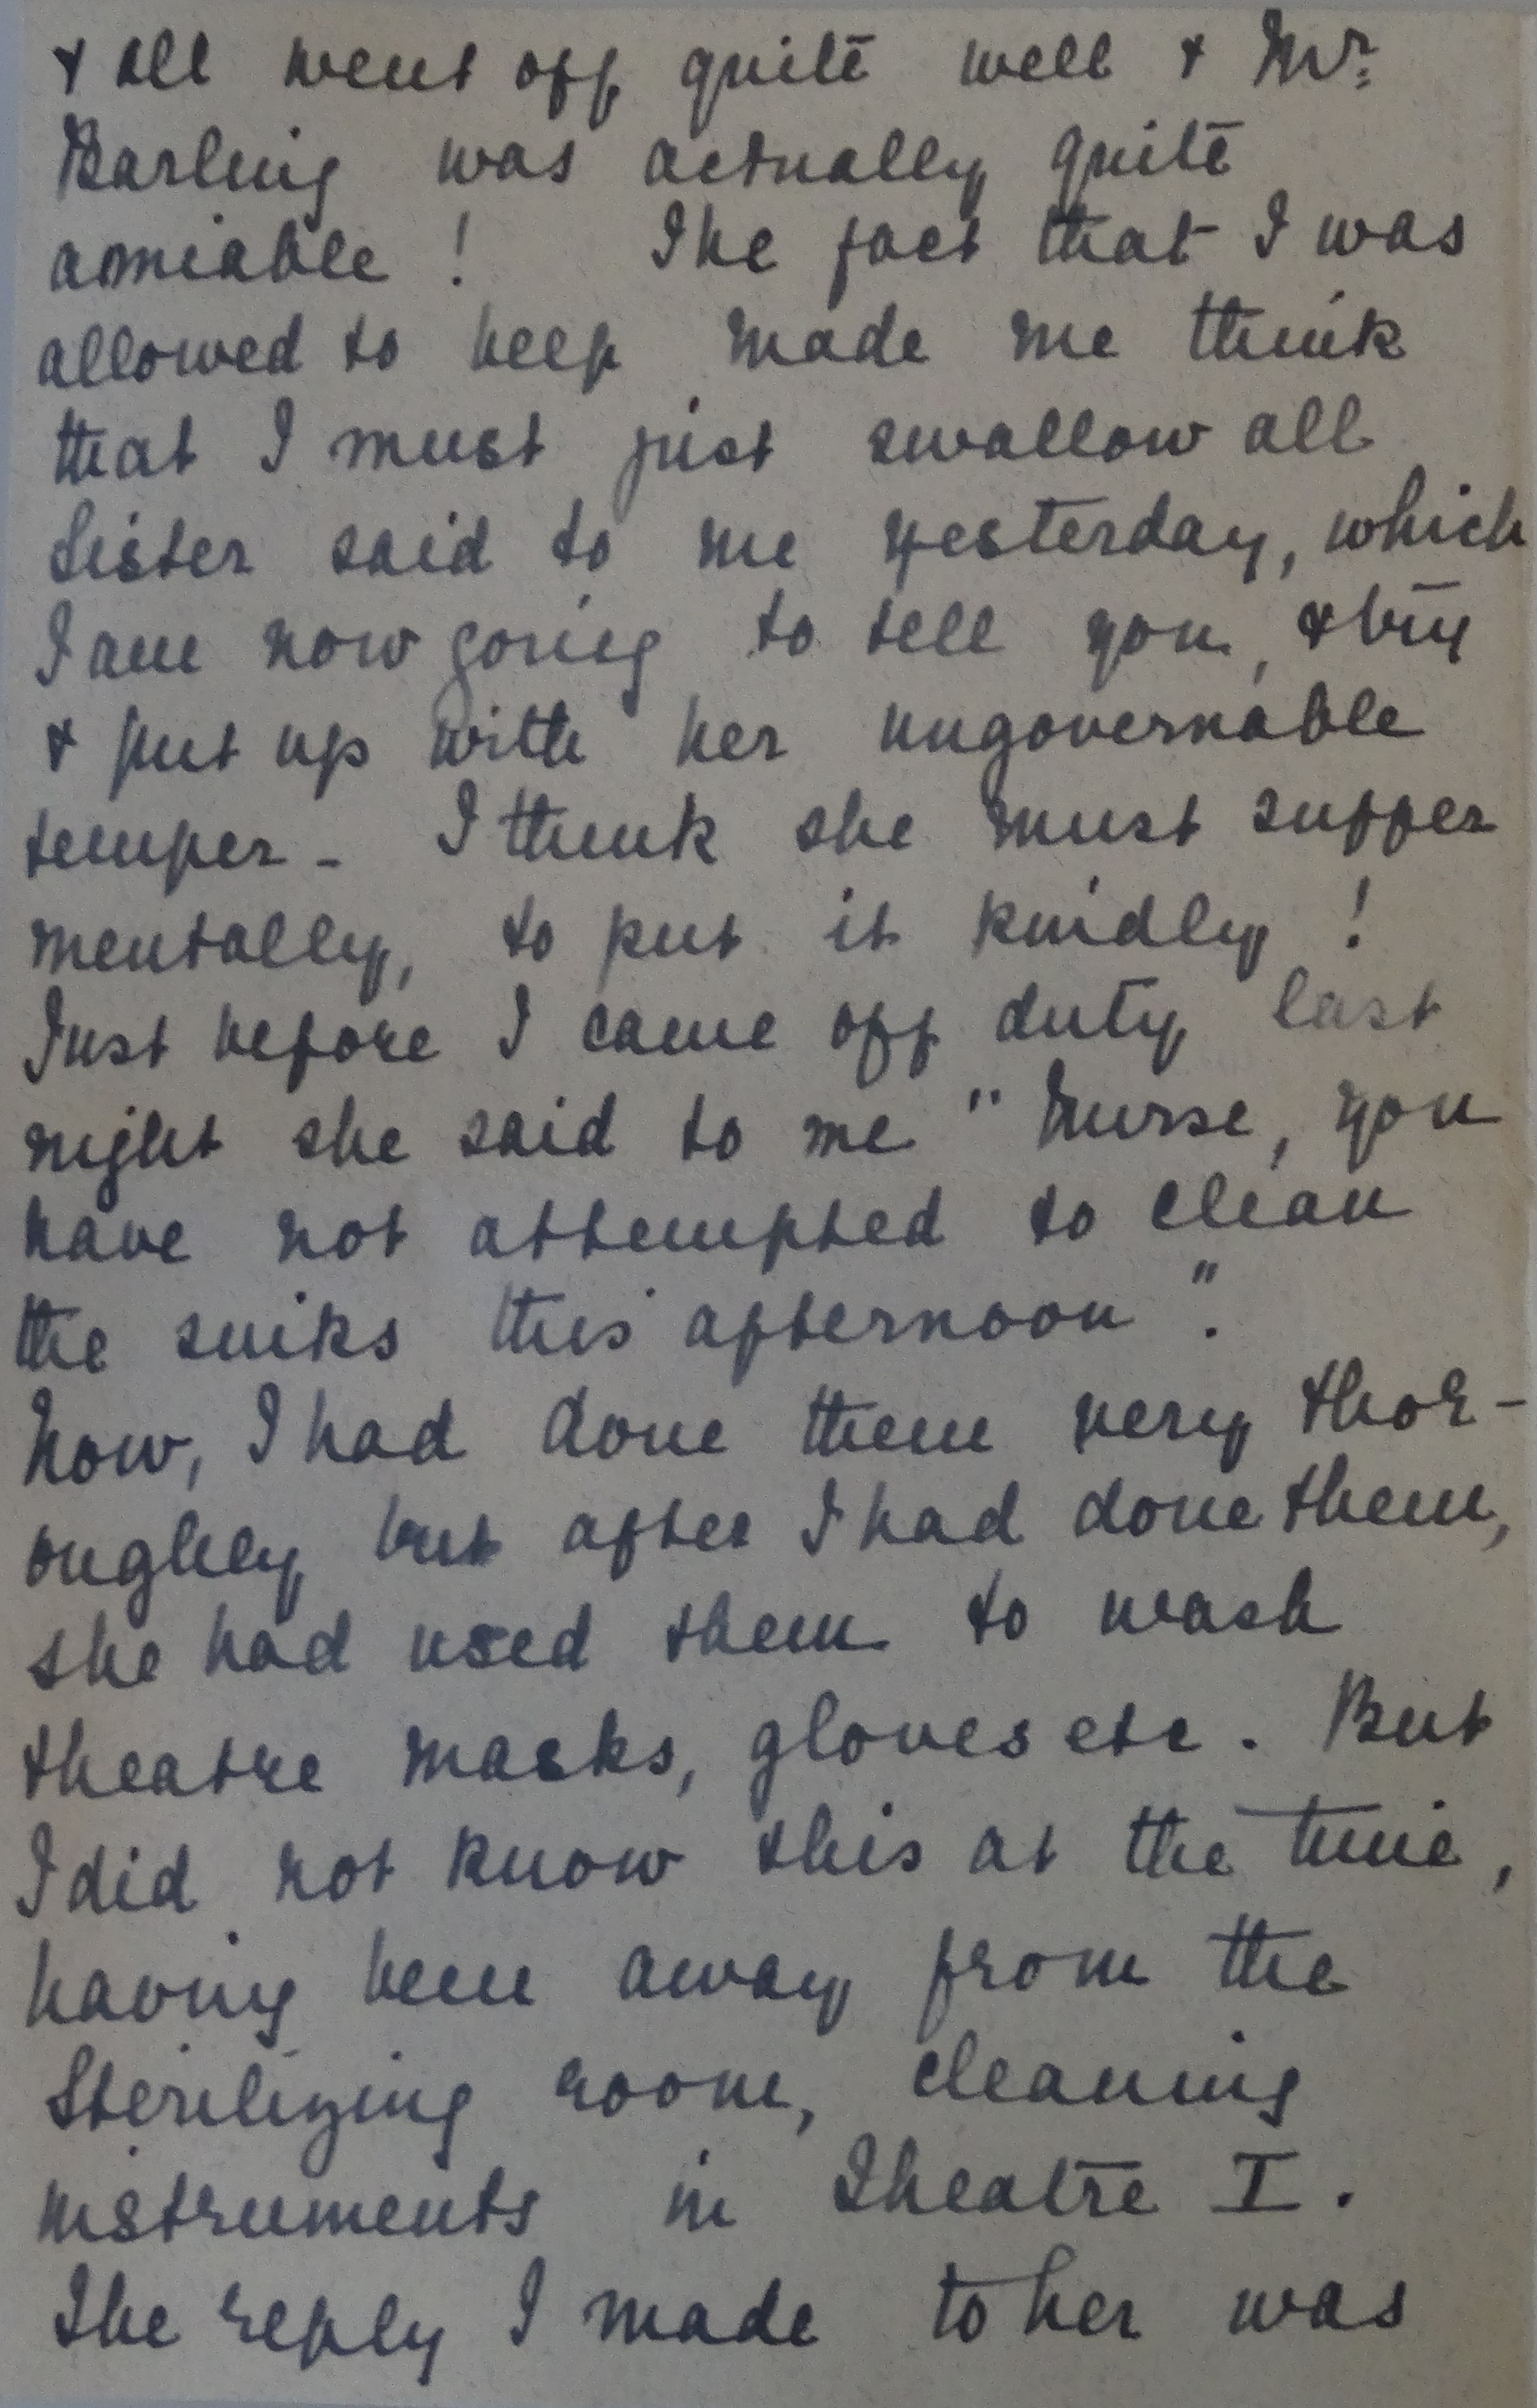 & all went off quite well & Mr.
Barling was actually quite
amiable ! The fact that I was
allowed to keep made me think
that I must just swallow all
Sister said to me yesterday, which
I am now going to tell you, & try
& put up with her ungovernable
temper - I think she must suffer
mentally, to put it kindly !
Just before I came off duty last
night she said to me " Nurse, you
have not attempted to clean
the sinks this afternoon ".
Now, I had done them very thor-
oughly but after I had done them,
she had used them to wash
theatre masks, gloves etc. But
I did not know this at the time,
having been away from the
Sterilizing room, cleaning
instruments in Theatre I.
The reply I made to her was